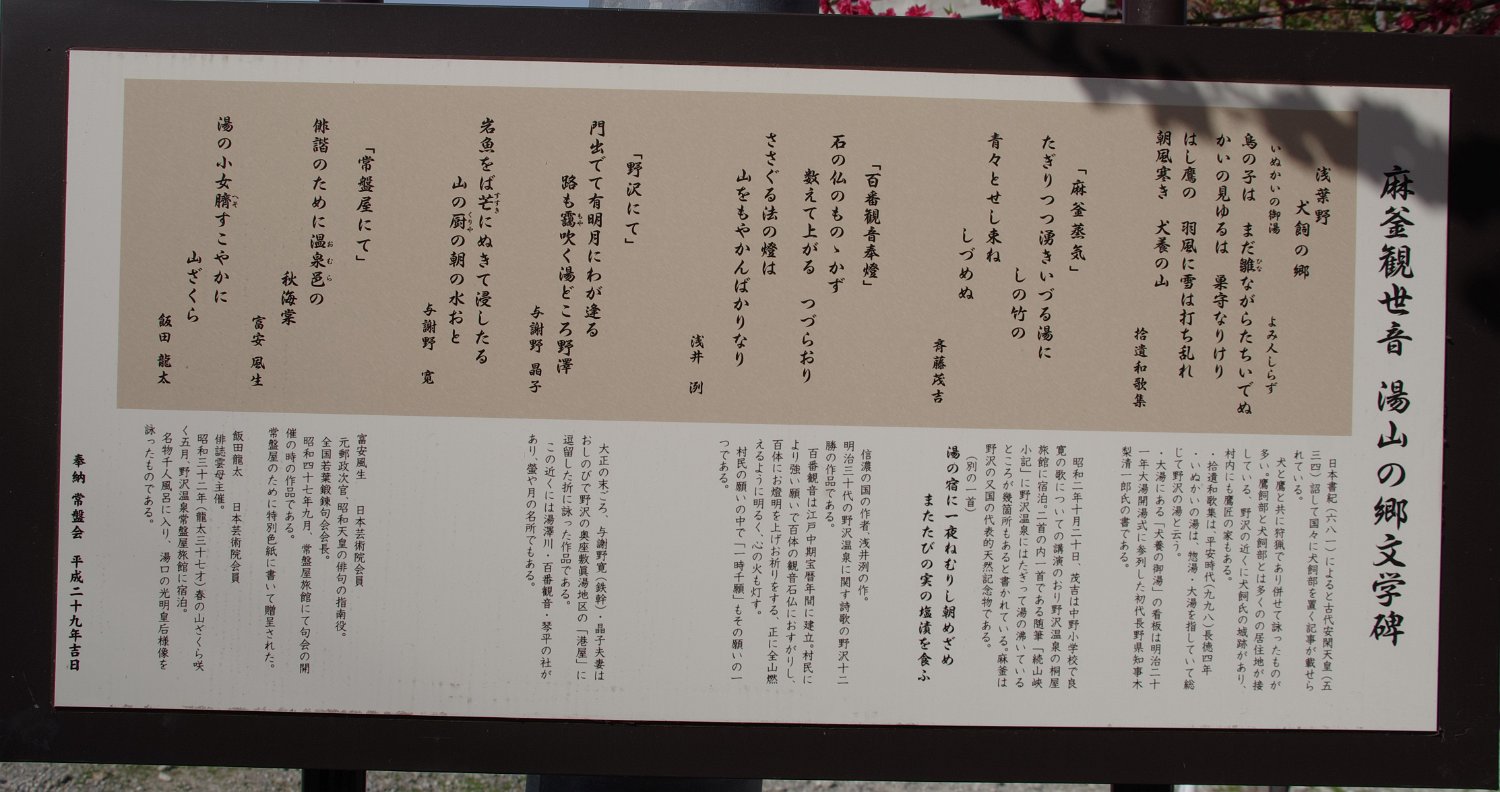 麻釜観世音 湯山の郷文学碑
浅葉野
犬飼の郷
いぬかいの御湯 よみ人しらず
鳥の子は まだ雛ながらたちいでぬ
ひな
かいの見ゆるは 巣守なりけり
はし鷹の 羽風に雪は打ち乱れ
朝風寒き 犬養の山
拾遺和歌集
「麻釜蒸気」
たぎりつつ湧きいづる湯に
しの竹の
青々とせし束ね
しづめぬ
斉藤茂吉
「百番観音奉燈」
石の仏のものゝかず
数えて上がる つづらおり
ささぐる法の燈は
山をもやかんばかりなり
浅井 洌
「野沢にて」
門出でて有明月にわが逢る
路も靄吹く湯どころ野澤
もや
与謝野 晶子
岩魚をば芒にぬきて浸したる
すすき
山の厨の朝の水おと
くりや
与謝野 寛
「常盤屋にて」
俳諧のために温泉邑の
おむら
秋海棠
富安 風生
湯の小女臍すこやかに
へそ
山ざくら
飯田 龍太
日本書紀(六八一)によると古代安閑天皇(五
三四)詔して国々に犬飼部を置く記事が載せら
れている。
犬と鷹と共に狩猟であり併せて詠ったものが
多い。鷹飼部と犬飼部とは多くのの居住地が接
している、野沢の近くに犬飼氏の城跡があり、
村内にも鷹匠の家もある。
・拾遺和歌集は、平安時代(九九八)長徳四年
・いぬかいの湯は、惣湯・大湯を指していて総
じて野沢の湯と云う。
・大湯にある「犬養の御湯」の看板は明治二十
一年大湯開湯式に参列した初代長野県知事木
梨清一郎氏の書である。
昭和二年十月二十日、茂吉は中野小学校で良
寛の歌についての講演のおり野沢温泉の桐屋
旅館に宿泊。二首の内一首である随筆「続山峡
小記」に野沢温泉にはたぎって湯の沸いている
ところが幾箇所もあると書かれている。麻釜は
野沢の又国の代表的天然記念物である。
(別の一首)
湯の宿に一夜ねむりし朝めざめ
またたびの実の塩漬を食ふ
信濃の国の作者、浅井洌の作。
明治三十代の野沢温泉に関す詩歌の野沢十二
勝の作品である。
百番観音は江戸中期宝暦年間に建立。村民に
より強い願いで百体の観音石仏におすがりし、
百体にお燈明を上げお祈りをする、正に全山燃
えるように明るく、心の火も灯す。
村民の願いの中で「一時千願」もその願いの一
つである。
大正の末ごろ、与謝野寛(鉄幹)・晶子夫妻は
おしのびで野沢の奥座敷真湯地区の「港屋」に
逗留した折に詠った作品である。
この近くには湯澤川・百番観音・琴平の社が
あり、螢や月の名所でもある。
富安風生 日本芸術院会員
元郵政次官、昭和天皇の俳句の指南役。
全国若葉鍛錬句会会長。
昭和四十七年九月、常盤屋旅館にて句会の開
催の時の作品である。
常盤屋のために特別色紙に書いて贈呈された。
飯田龍太 日本芸術院会員
俳誌雲母主催。
昭和三十二年(龍太三十七才)春の山ざくら咲
く五月、野沢温泉常盤屋旅館に宿泊。
名物千人風呂に入り、湯口の光明皇后様像を
詠ったものである。
奉納 常盤会 平成二十九年吉日